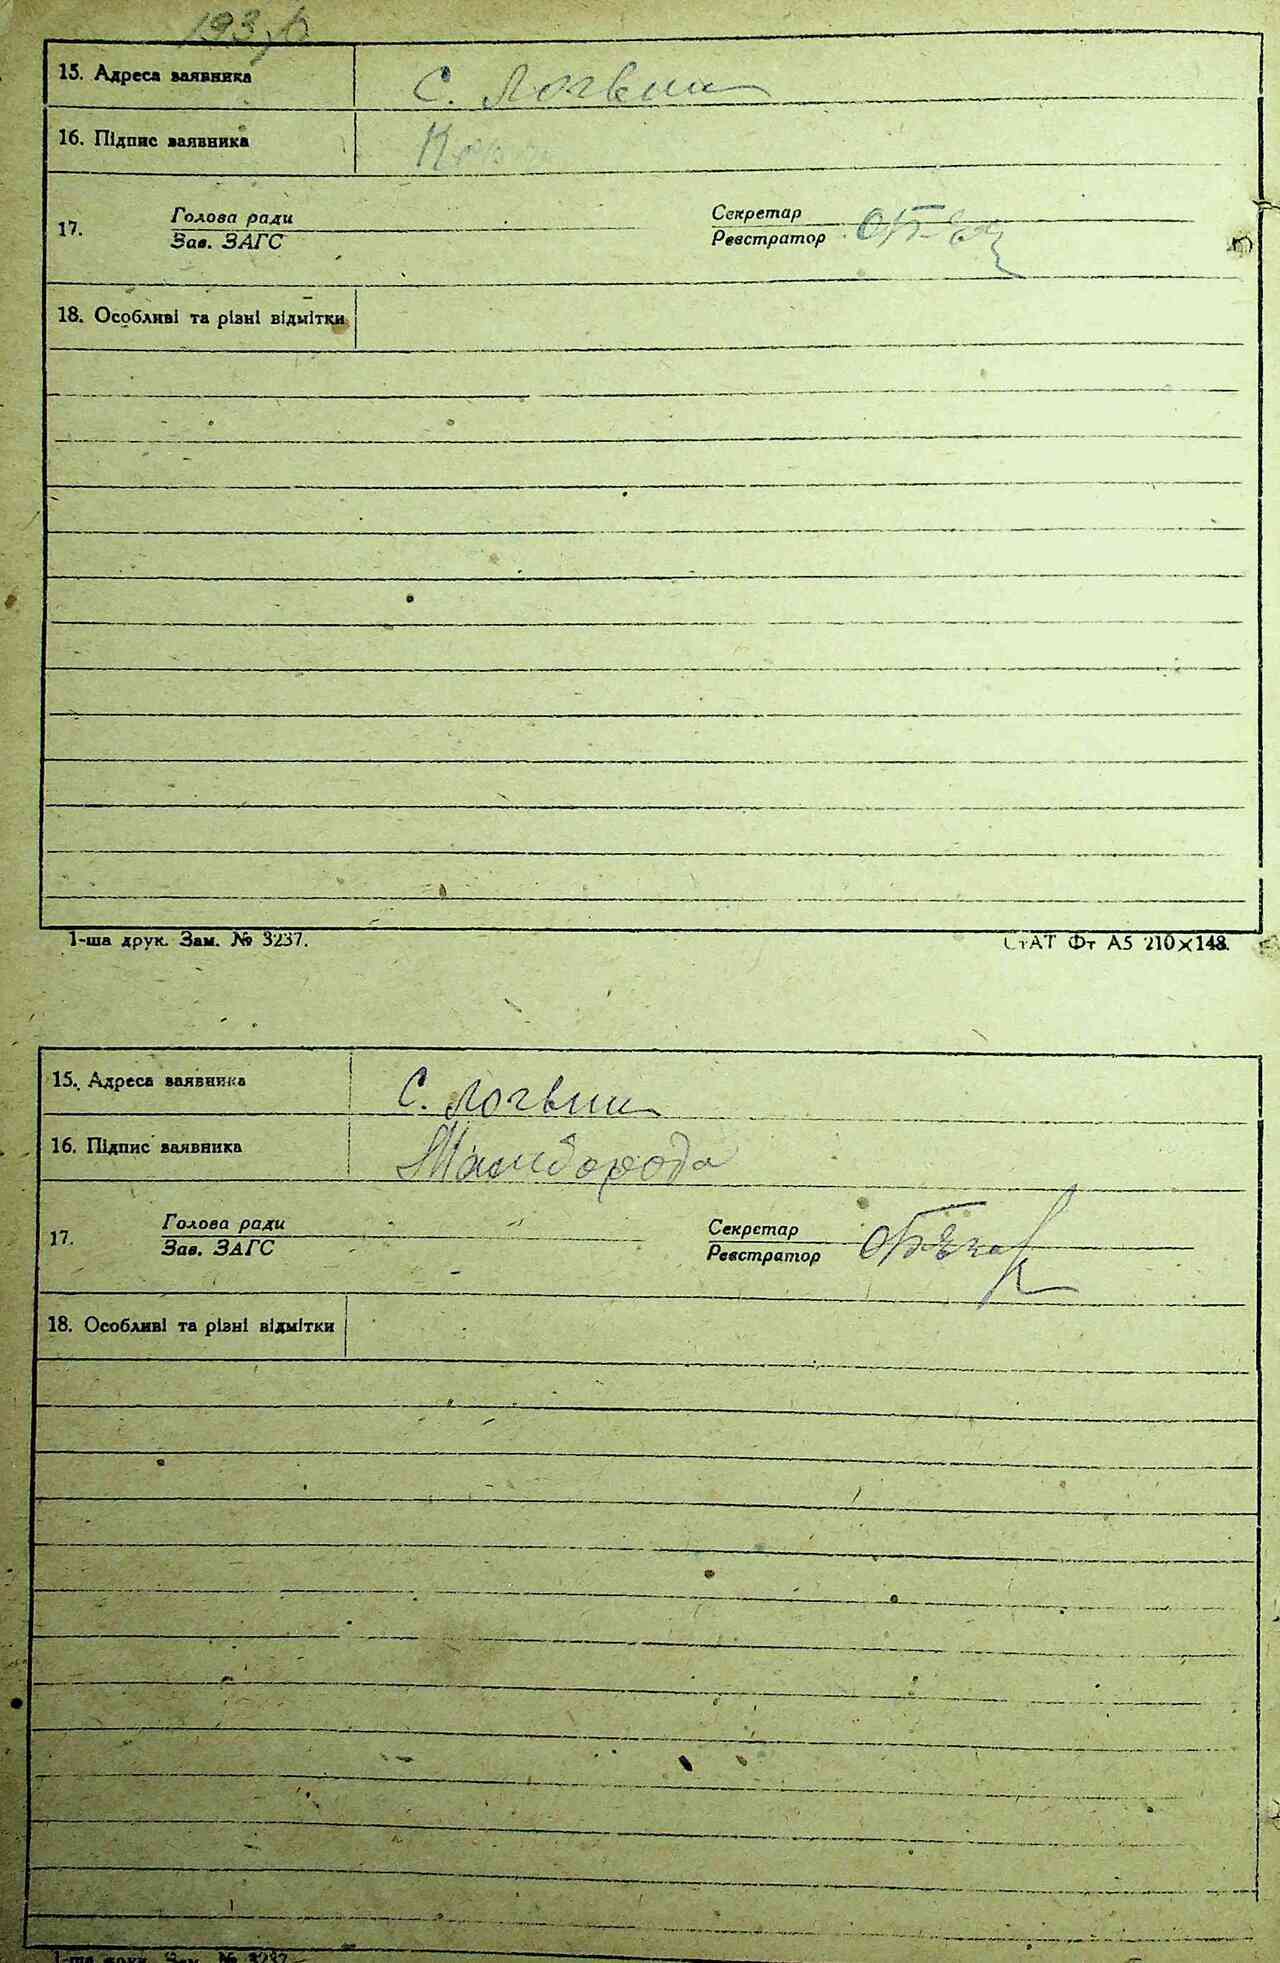 15. Адреса заявника С. Логвин
16. Підпис заявника
17. Голова ради Секретар
Зав. ЗАГС Реєстратор
18. Особливі та різні відмітки
1-ша друк. Зам. № 3237. СтАТ Фт А5 210×148.
15. Адреса заявника С. Логвин
16. Підпис заявника
17. Голова ради Секретар
Зав. ЗАГС Реєстратор
18. Особливі та різні відмітки
1-ша друк. Зам. № 3237